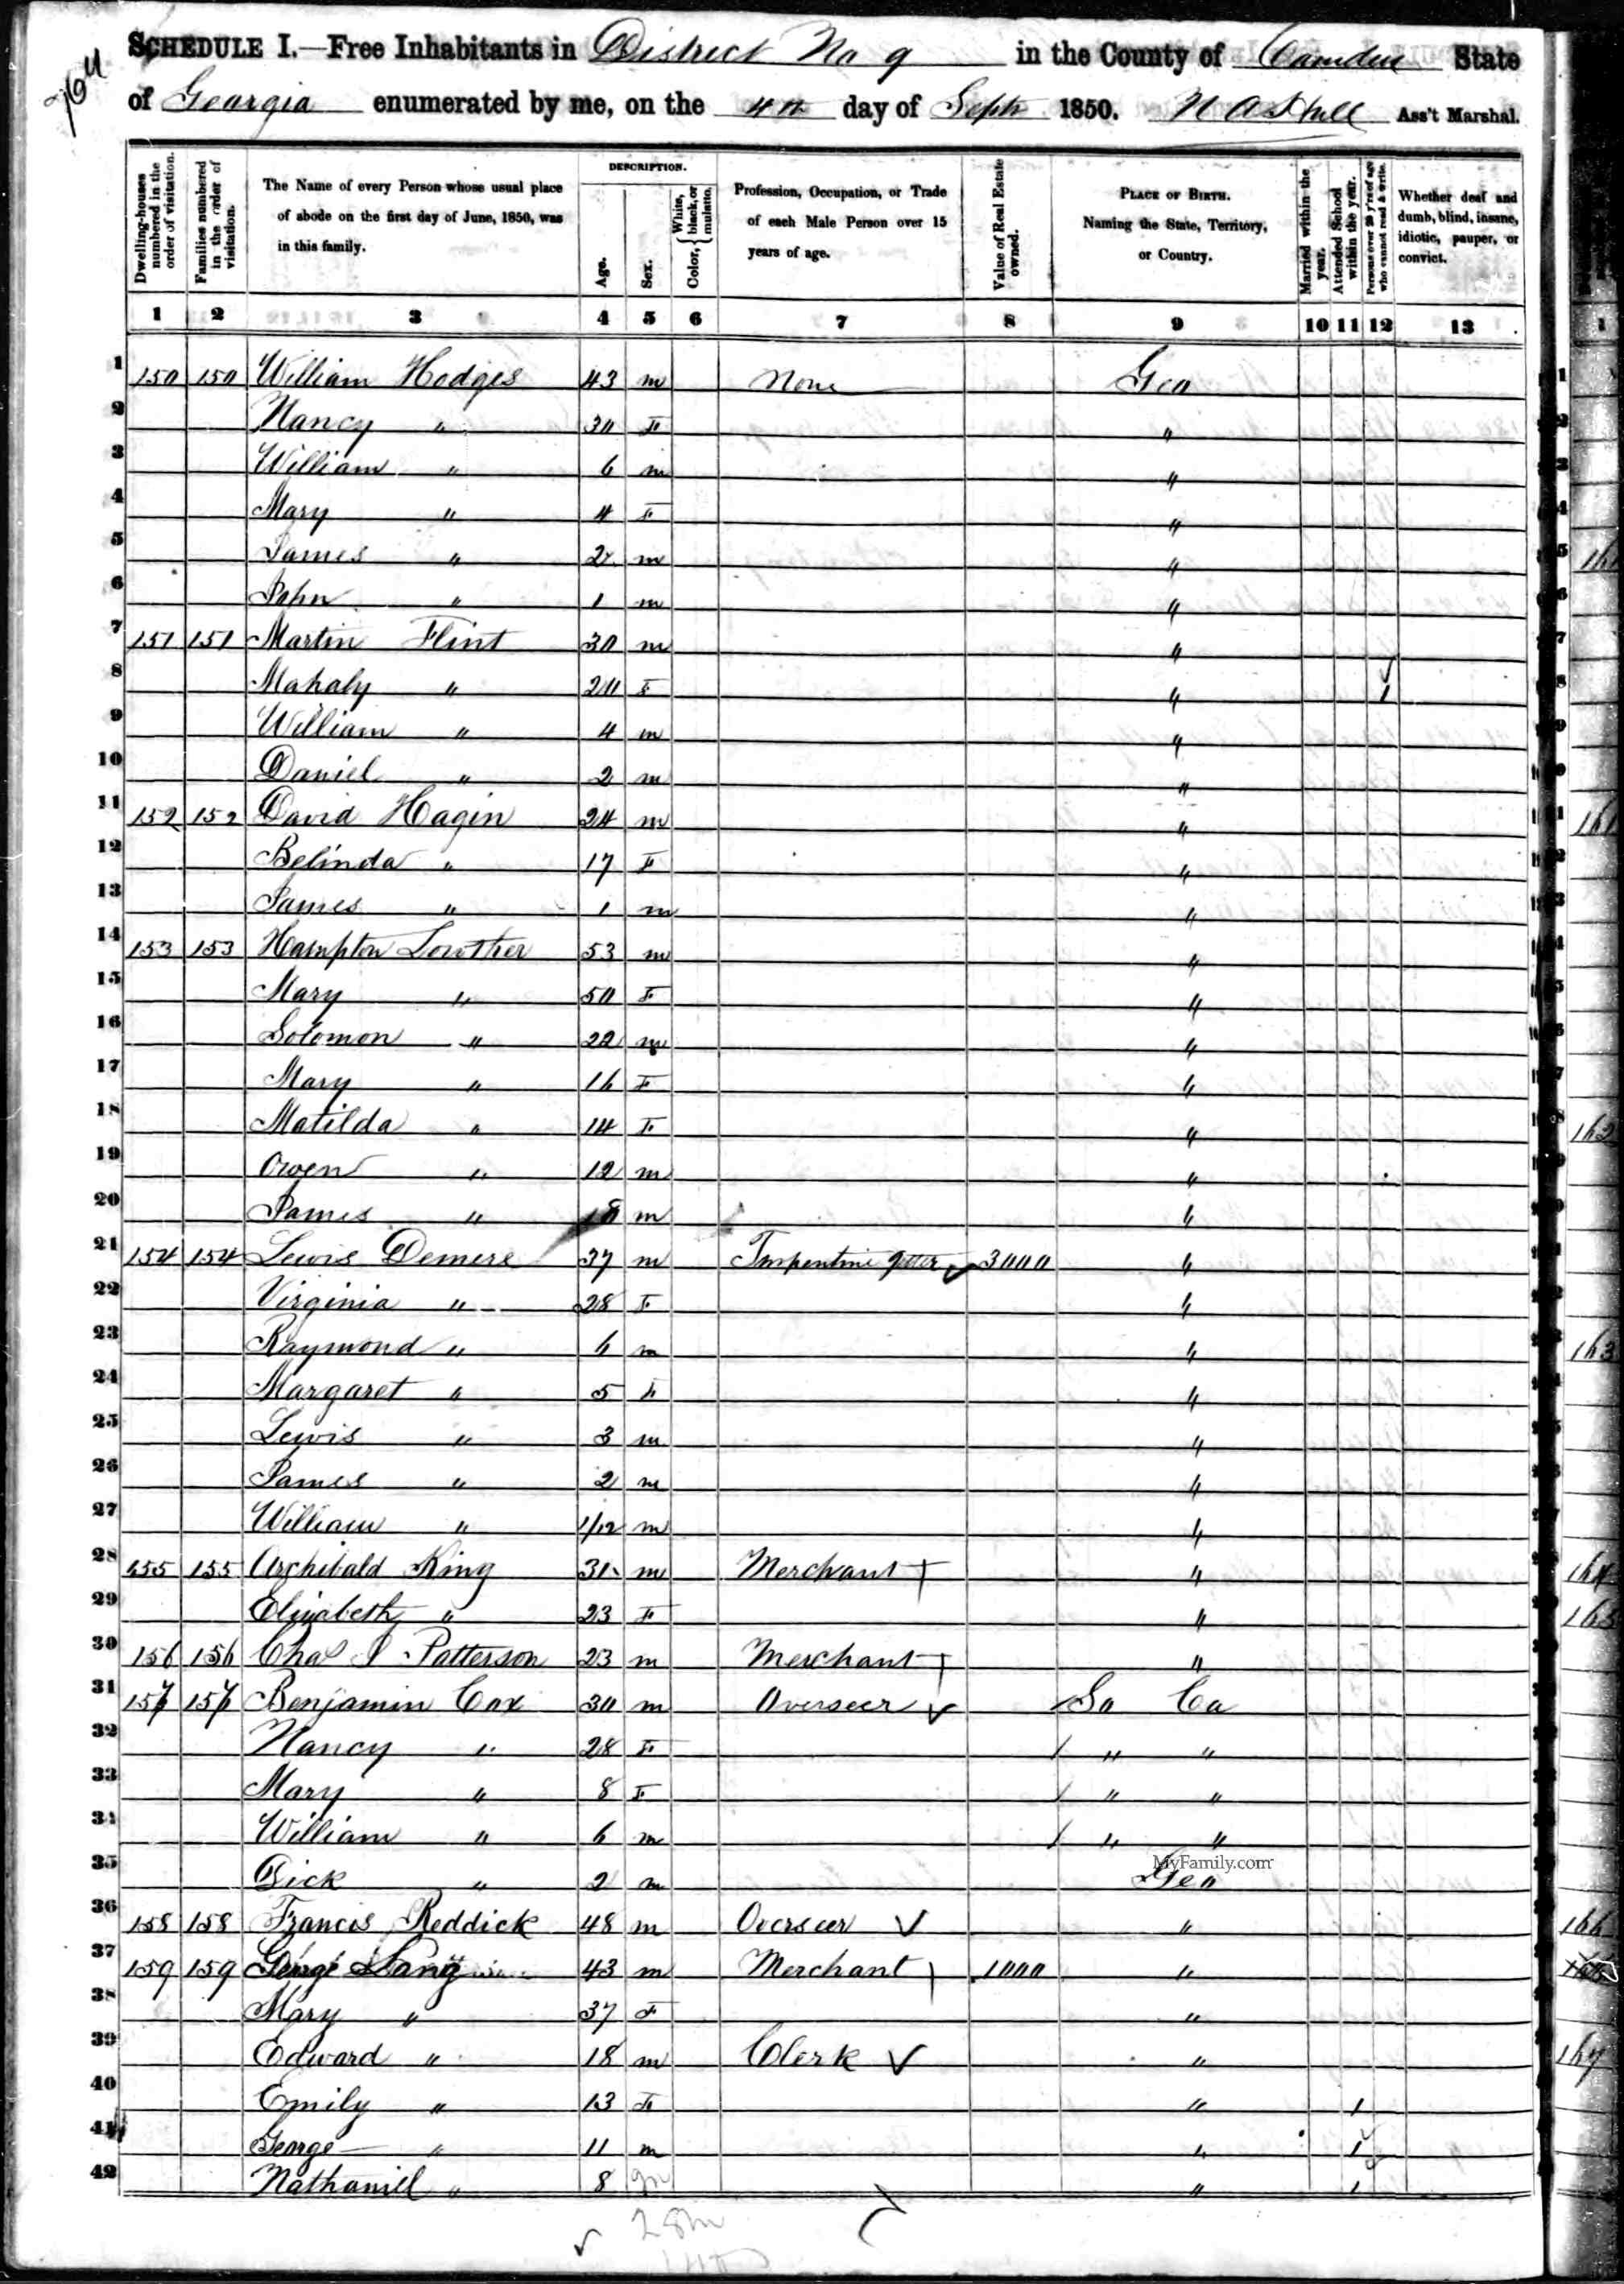 764
SCHEDULE I.—Free Inhabitants in District No 9 in the County of Camden State
of Georgia enumerated by me, on the 4th day of Septr 1850. Ass't Marshal.
Dwelling-houses numbered in the order of visitation.
Families numbered in the order of visitation.
The Name of every Person whose usual place of abode on the first day of June, 1850, was in this family.
DESCRIPTION.
Age.
Sex.
Color, { White, black, or mulatto.
Profession, Occupation, or Trade of each Male Person over 15 years of age.
Value of Real Estate owned.
PLACE OF BIRTH. Naming the State, Territory, or Country.
Married within the year.
Attended School within the year.
Persons over 20 y'rs of age who cannot read & write.
Whether deaf and dumb, blind, insane, idiotic, pauper, or convict.
1 2 3 4 5 6 7 8 9 10 11 12 13
1 150 150 William Hodges 43 m None Geo
2 Nancy " 30 F "
3 William " 6 m "
4 Mary " 4 F "
5 James " 2 m "
6 John " 1 m "
7 151 151 Martin Flint 30 m "
8 Mahaly " 20 F " 1
9 William " 4 m "
10 Daniel " 2 m "
11 152 152 David Hagin 24 m "
12 Belinda " 17 F "
13 James " 1 m "
14 153 153 Hampton Lowther 53 m "
15 Mary " 50 F "
16 Solomon " 22 m "
17 Mary " 16 F "
18 Matilda " 14 F "
19 Owen " 12 m "
20 James " m "
21 154 154 Lewis Demere 37 m Turpentine getter 3000 "
22 Virginia " 28 F "
23 Raymond " 6 m "
24 Margaret " 5 F "
25 Lewis " 3 m "
26 James " 2 m "
27 William " 1/12 m "
28 155 155 Archibald King 31 m Merchant "
29 Elizabeth " 23 F "
30 156 156 Chas I Patterson 23 m Merchant "
31 157 157 Benjamin Cox 30 m Overseer So Ca
32 Nancy " 28 F " "
33 Mary " 8 F " "
34 William " 6 m " "
35 Dick " 2 m Geo
MyFamily.com
36 158 158 Francis Reddick 48 m Overseer "
37 159 159 George Lang 43 m Merchant 1000 "
38 Mary " 37 F "
39 Edward " 18 m Clerk "
40 Emily " 13 F " 1
41 George " 11 m " 1
42 Nathaniel " 8 m " 1
28m